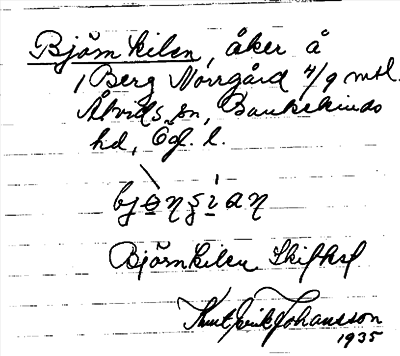 Björnkilen, åker å
1 Berg Norrgård 4/9 mtl.
Åtvids sn, Bankekinds
hd, Ög. l.
Björnkilen Skifksf
Knut Erik Johansson
1935